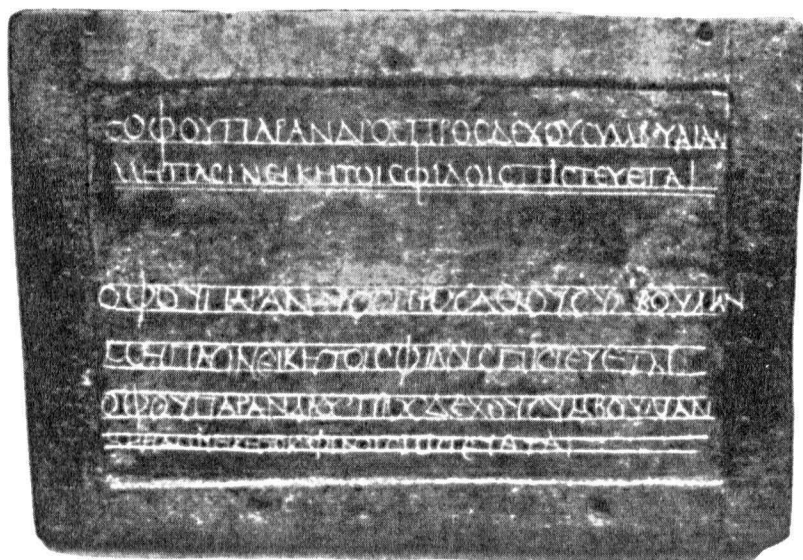 CΟΦΟΥΠΑΡΑΝΔΡΟCΠΡΟCΔΕΧΟΥCΥΜΒΟΥΛΙΑΝ
ΜΗΠΑCΙΝΕΙΚΗΤΟΙCΦΙΛΟΙCΠΙCΤΕΥΕΤΑΙ
ΟΦΟΥΠΑΡΑΝΔΡΟCΠΡΟCΔΕΧΟΥCΥΜΒΟΥΛΙΑΝ
ΗΠΑCΙΝΕΙΚΗΤΟΙCΦΙΛΟΙCΠΙCΤΕΥΕΤΑΙ
ΟΦΟΥΠΑΡΑΝΔΡΟCΠΡΟCΔΕΧΟΥCΥΜΒΟΥΛΙΑΝ